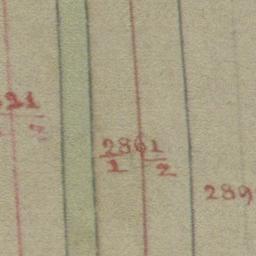 21
2
2861
1 2
289